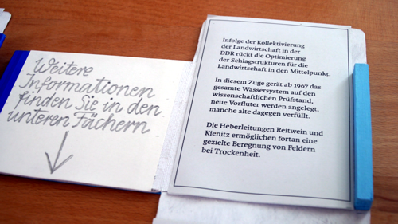 Weitere
Informationen
finden Sie in den
unteren Fächern
Infolge der Kollektivierung
der Landwirtschaft in der
DDR rückt die Optimierung
der Schlagstrukturen für die
Landwirtschaft in den Mittelpunkt.
In diesem Zuge gerät ab 1967 das
gesamte Wassersystem auf den
wissenschaftlichen Prüfstand,
neue Vorfluter werden angelegt,
manche alte dagegen verfüllt.
Die Heberleitungen Reitwein und
Kienitz ermöglichen fortan eine
gezielte Beregnung von Feldern
bei Trockenheit.